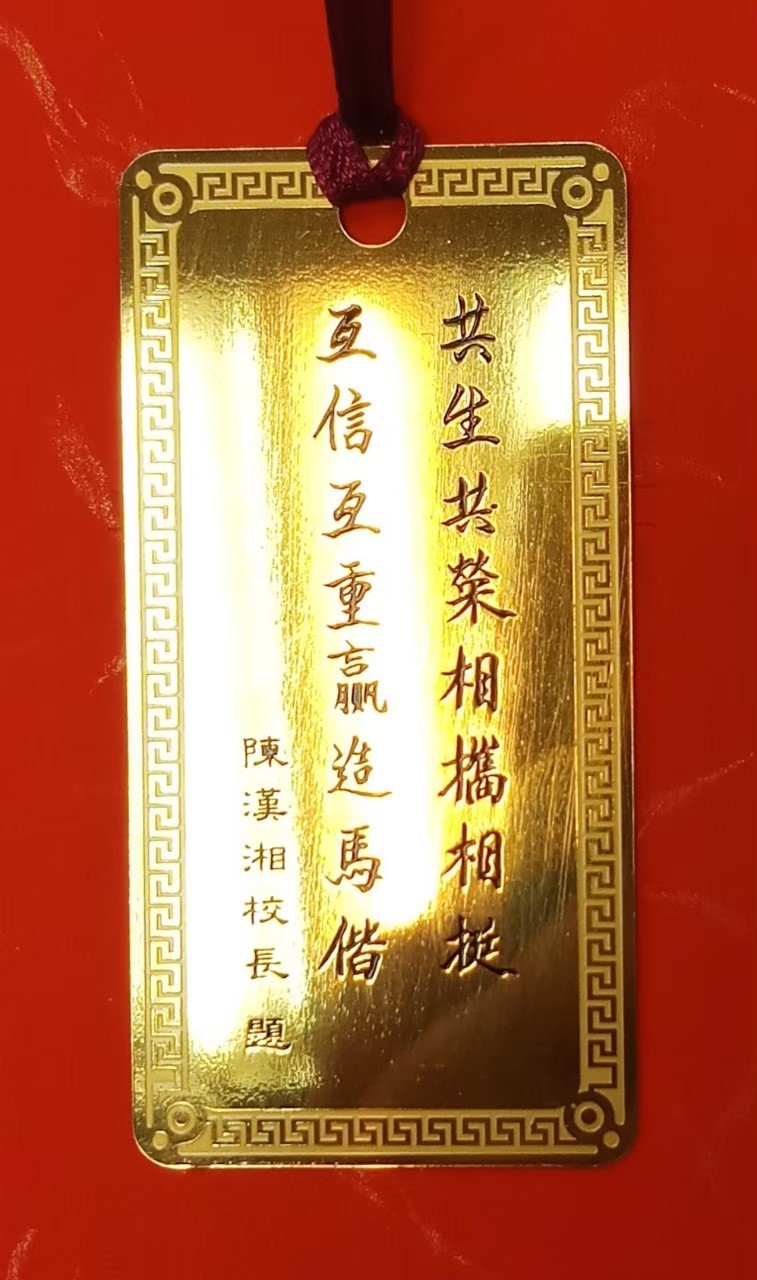 共生共榮相攜相挺
互信互重贏造馬偕
陳漢湘校長題